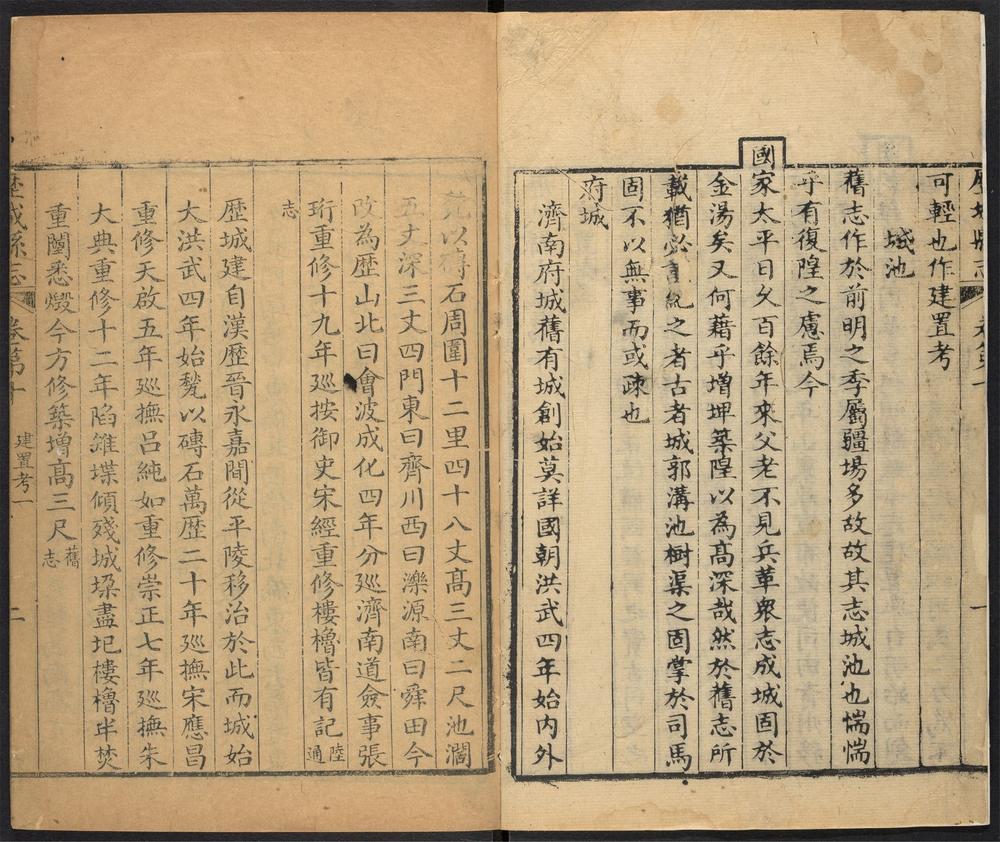 歷城縣志 卷第十 一
可輕也作建置考
城池
舊志作於前明之季屬疆場多故故其志城池也惴惴
乎有復隍之慮焉今
國家太平日久百餘年來父老不見兵革衆志成城固於
金湯矣又何藉乎增埤築隍以為高深哉然於舊志所
載猶必之者古者城郭溝池樹渠之固掌於司馬
固不以無事而或疎也
府城
濟南府城舊有城創始莫詳國朝洪武四年始内外
甃以磚石周圍十二里四十八丈高三丈二尺池濶
五丈深三丈四門東曰齊川西曰濼源南曰舜田今
改為歷山北曰會波成化四年分廵濟南道僉事張
珩重修十九年廵按御史宋經重修樓櫓皆有記陸通
志
歷城建自漢歷晉永嘉間從平陵移治於此而城始
大洪武四年始甃以磚石萬歷二十年廵撫宋應昌
重修天啟五年廵撫呂純如重修崇正七年廵撫朱
大典重修十二年陷雉堞傾殘城垜盡圮樓櫓半焚
重闉悉燬今方修築增高三尺舊志
歷城縣志 卷第十 建置考一 二